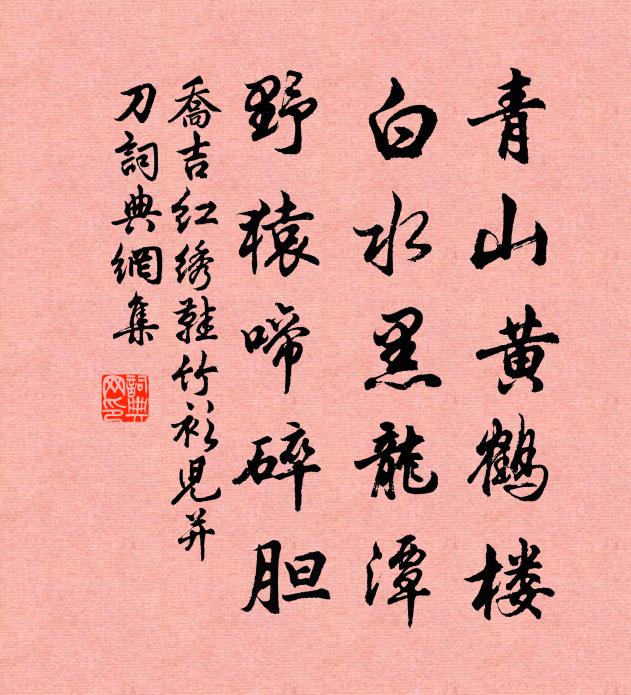 青山黄鹤楼
白水黑龍潭
野猿啼碎胆
喬吉红绣鞋竹衫児并
刀詞典網集
詞典
网印